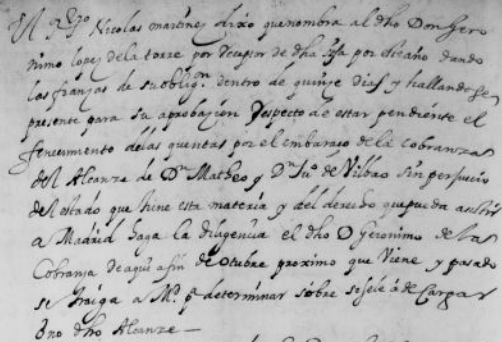 El Rexo Nicolas martinez dixo que nombra al dho Don Gero
nimo lopez de la torre por Receptor de dha sisa por dicho año dando
las fianzas de su obligon. dentro de quinze dias y hallandose
presente para su aprobazion Respecto de estar pendiente el
fenezimiento de las quentas por el embarazo de la cobranza
del Alcanze de Dn. Matheo y Dn. Juo. de Vilbao sin perjuicio
del estado que tiene esta materia y del derecho que pueda asistir
a Madrid haga la diligencia el dho D Geronimo de la
Cobranza de aqui a fin de otubre proximo que Viene y pasado
se traiga a Md. pa determinar sobre si se le a de Cargar
o no dho Alcanze